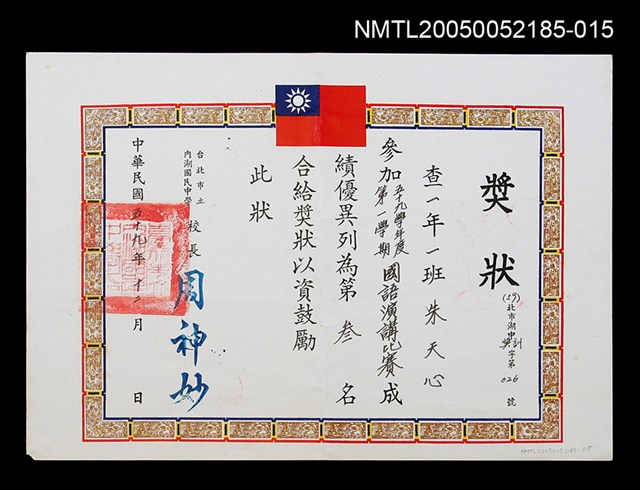 NMTL20050052185-015
獎狀
(59)北市湖中訓獎字第026號
查一年一班朱天心
參加五十九學年度第一學期國語演講比賽成
績優異列為第叁名
合給獎狀以資鼓勵
此狀
台北市立內湖國民中學校長周神妙
中華民國五十九年十二月 日
NMTL20050052185-015